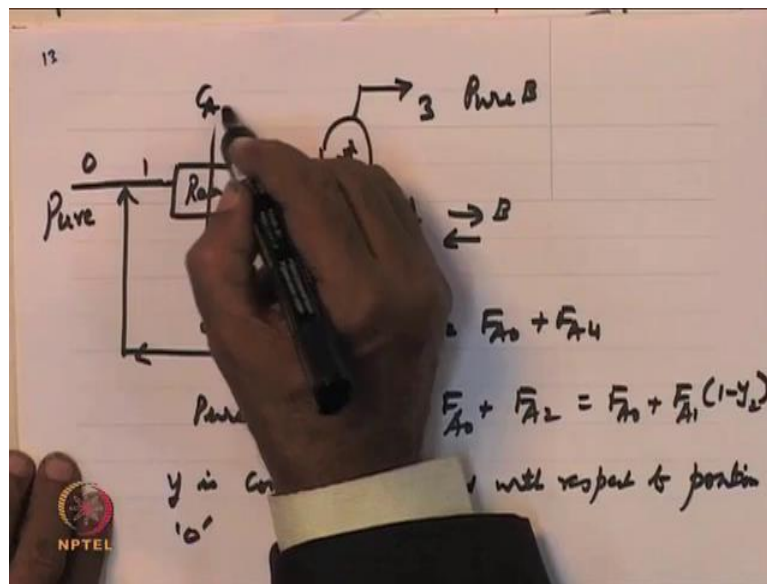 13
C_A
3 Pure B
0 1
Pure
⇌ B
F_A0 + F_A4
Pure F_A0 + F_A2 = F_A0 + F_A1 (1-y_2)
y is with respect to position
'0'
NPTEL